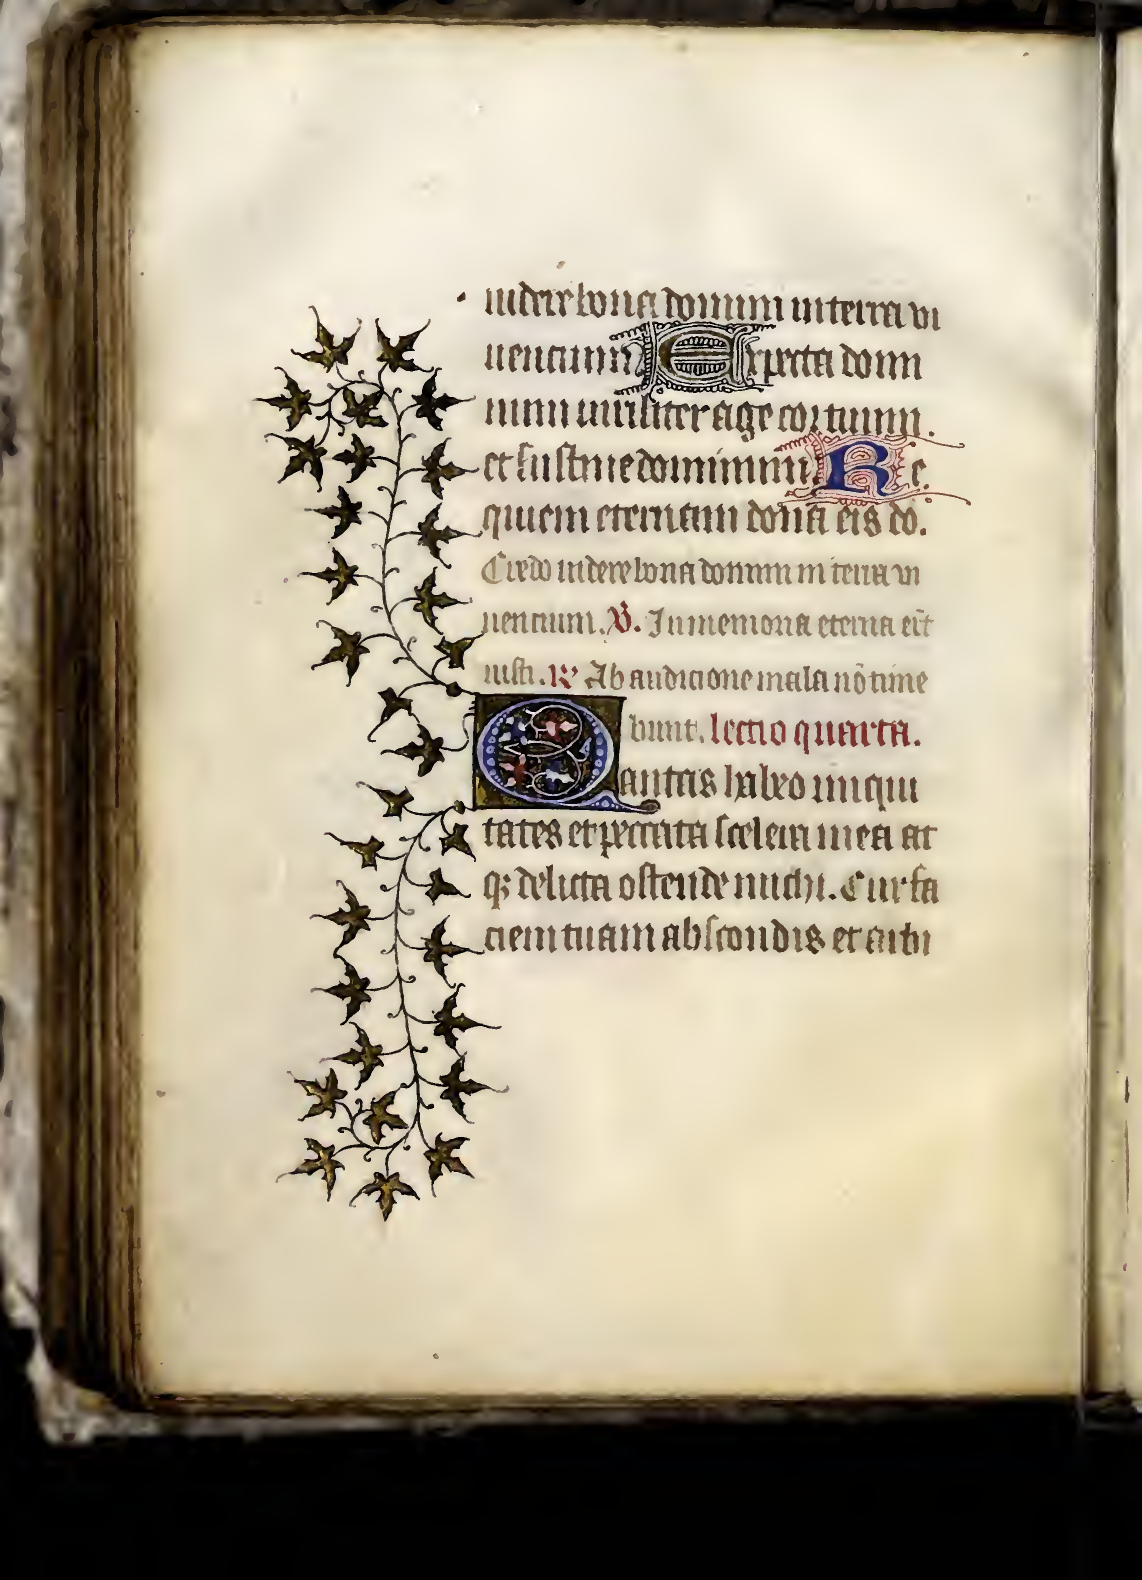 uidere bona domini in terra vi
uentium Expecta domi
num uiriliter age cor tuum.
et sustine dominum Re
quiem eternam dona eis do.
Credo uidere bona domini in terra ui
uentium. V. In memoria eterna erit
iusti. R Ab audicione mala nõ time
bunt. lectio quarta.
Quantas habeo iniqui
tates et peccata scelera mea at
q; delicta ostende michi. Cur fa
ciem tuam abscondis et arbi